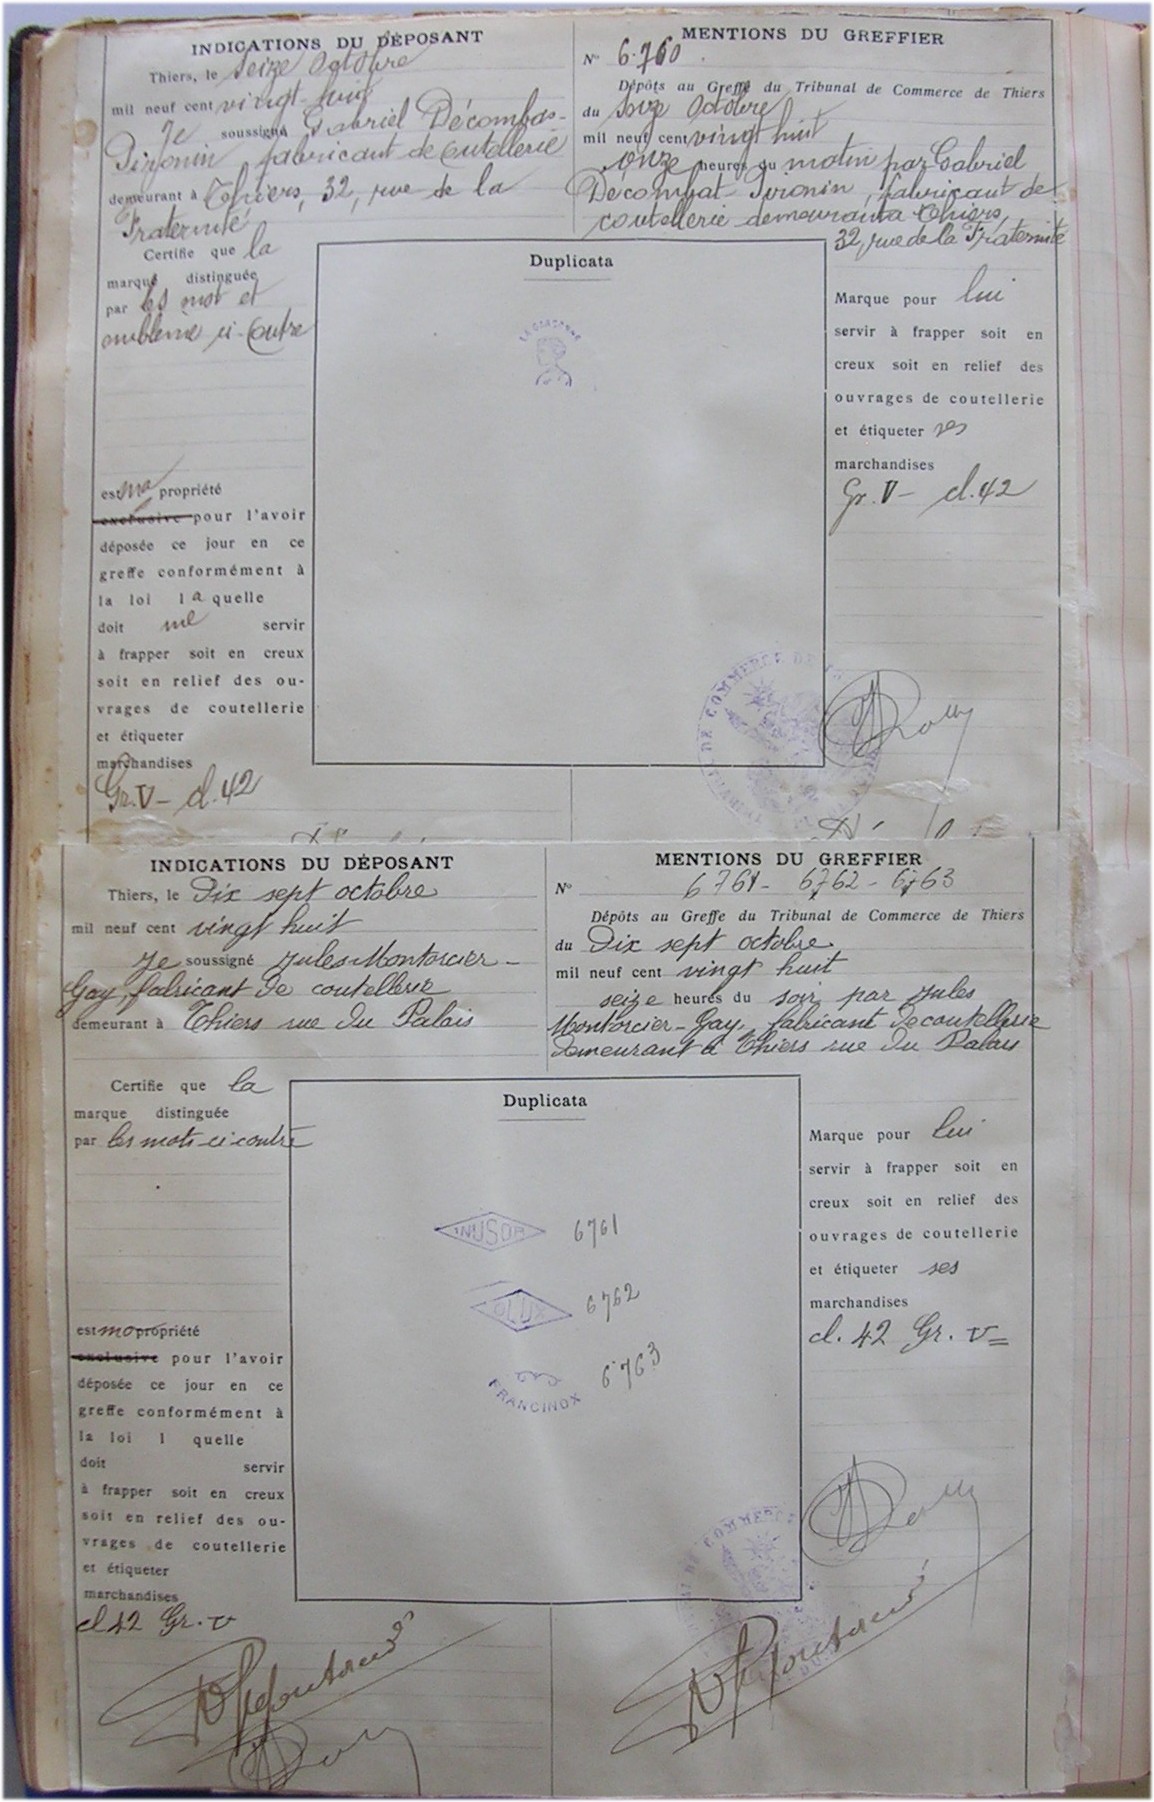 INDICATIONS DU DÉPOSANT
Thiers, le seize Octobre
mil neuf cent vingt-huit
Je soussigné Gabriel Décombas-
Pironin fabricant de Coutellerie
demeurant à Thiers, 32, rue de la
Fraternité
Certifie que la
marque distinguée
par les mot et
emblème ci-Contre
est ma propriété
exclusive pour l'avoir
déposée ce jour en ce
greffe conformément à
la loi laquelle
doit me servir
à frapper soit en creux
soit en relief des ou-
vrages de coutellerie
et étiqueter
marchandises
Gr. V - cl. 42
MENTIONS DU GREFFIER
N° 6.760
Dépôts au Greffe du Tribunal de Commerce de Thiers
du Seize Octobre
mil neuf cent vingt huit
onze heures du matin par Gabriel
Décombat-Pironin, fabricant de
coutellerie demeurant à Thiers,
32, rue de la Fraternité
Duplicata
LA GARÇONNE
Marque pour lui
servir à frapper soit en
creux soit en relief des
ouvrages de coutellerie
et étiqueter ses
marchandises
Gr. V - cl. 42
DE COMMERCE DE
INDICATIONS DU DÉPOSANT
Thiers, le Dix sept octobre
mil neuf cent vingt huit
Je soussigné Jules Montorcier-
Gay, fabricant de coutellerie
demeurant à Thiers rue du Palais
Certifie que la
marque distinguée
par les mots ci-contre
est ma propriété
exclusive pour l'avoir
déposée ce jour en ce
greffe conformément à
la loi l quelle
doit servir
à frapper soit en creux
soit en relief des ou-
vrages de coutellerie
et étiqueter
marchandises
cl 42 Gr. V
MENTIONS DU GREFFIER
N° 6761 - 6762 - 6763
Dépôts au Greffe du Tribunal de Commerce de Thiers
du Dix sept octobre
mil neuf cent vingt huit
seize heures du soir par Jules
Montorcier-Gay, fabricant de coutellerie
demeurant à Thiers rue du Palais
Duplicata
INUSOR 6761
OLUX 6762
FRANCINOX 6763
Marque pour lui
servir à frapper soit en
creux soit en relief des
ouvrages de coutellerie
et étiqueter ses
marchandises
cl. 42 Gr. V
DE COMMERCE